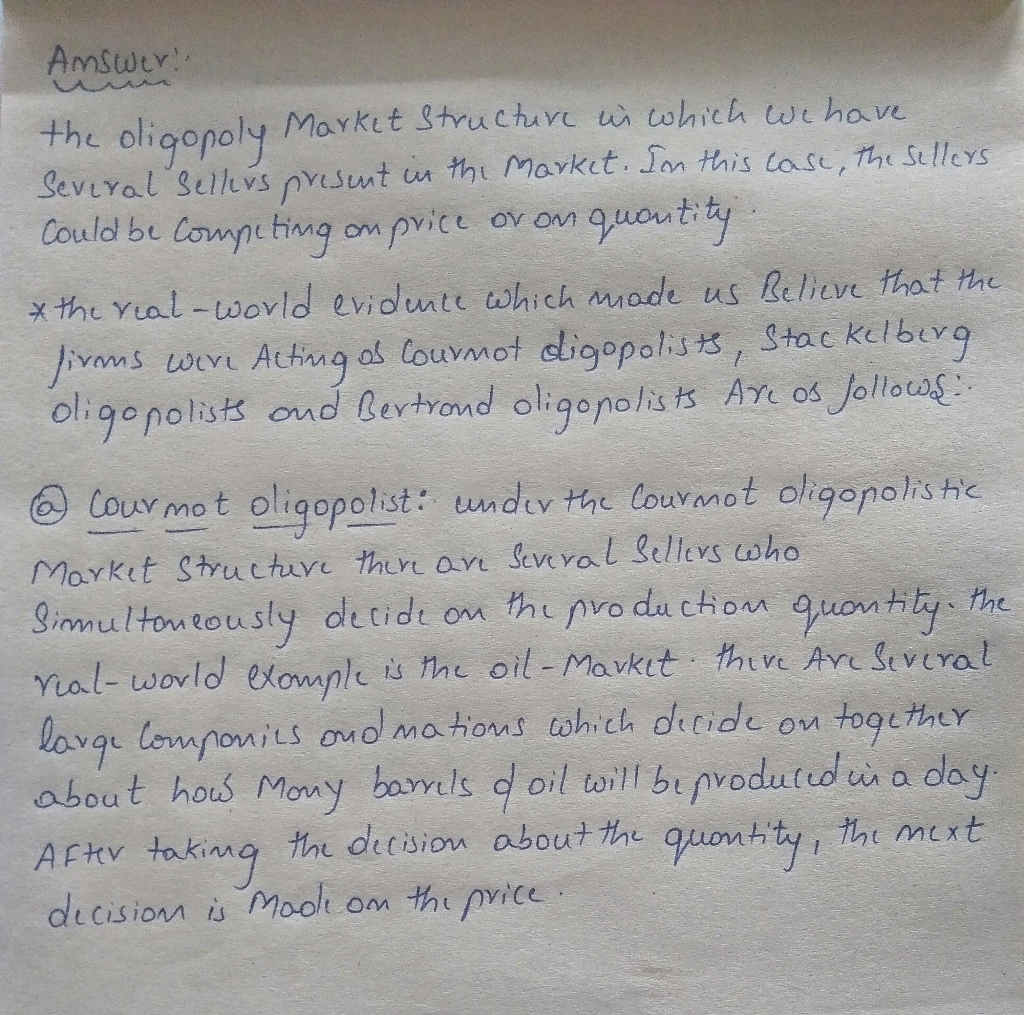 Answer:
the oligopoly Market Structure is which we have
Several Sellers present in the Market. In this case, the Sellers
Could be Competing on price or on quantity.
* the real-world evidence which made us Believe that the
firms were Acting as Cournot oligopolists, Stackelberg
oligopolists and Bertrand oligopolists Are as follows:
(a) Cournot oligopolist: under the Cournot oligopolistic
Market Structure there are Several Sellers who
Simultaneously decide on the production quantity. the
real-world example is the oil-Market. there Are Several
large Companies and nations which decide on together
about how Many barrels of oil will be produced in a day.
After taking the decision about the quantity, the next
decision is Made on the price.